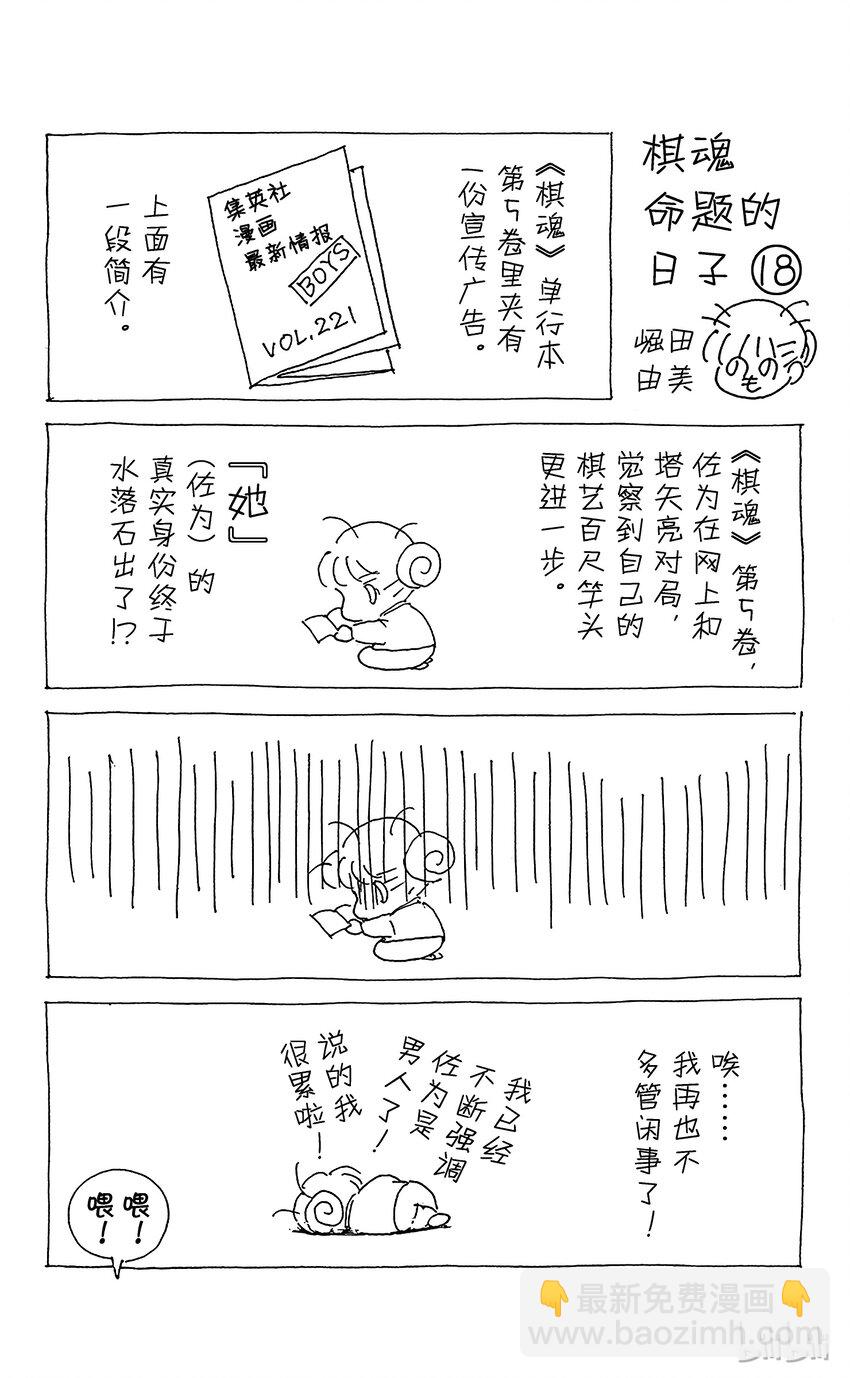 棋魂
命题的
日子 18
崛田
由美
《棋魂》单行本
第5卷里夹有
一份宣传广告。
集英社
漫画
最新情报
BOYS
VOL.221
上面有
一段简介。
《棋魂》第5卷，
佐为在网上和
塔矢亮对局，
觉察到自己的
棋艺百尺竿头
更进一步。
『她』
（佐为）的
真实身份终于
水落石出了！？
唉……
我再也不
多管闲事了！
我已经
不断强调
佐为是
男人了！
说的我
很累啦！
喂！
喂！
最新免费漫画
www.baozimh.com